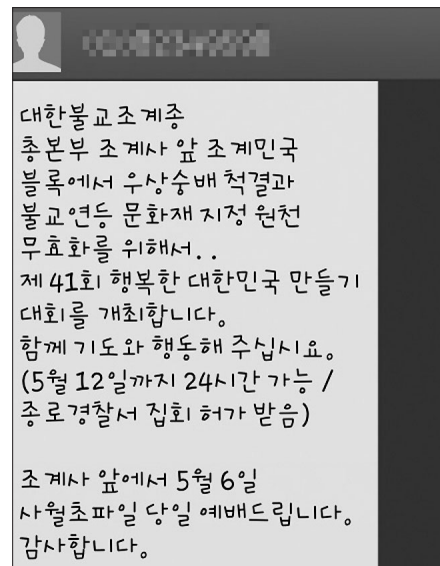 대한불교조계종
총본부 조계사 앞 조계민국
블록에서 우상숭배 척결과
불교연등 문화재 지정 원천
무효화를 위해서..
제 41회 행복한 대한민국 만들기
대회를 개최합니다.
함께 기도와 행동해 주십시요.
(5월 12일까지 24시간 가능 /
종로경찰서 집회 허가 받음)
조계사 앞에서 5월 6일
사월초파일 당일 예배드립니다.
감사합니다.